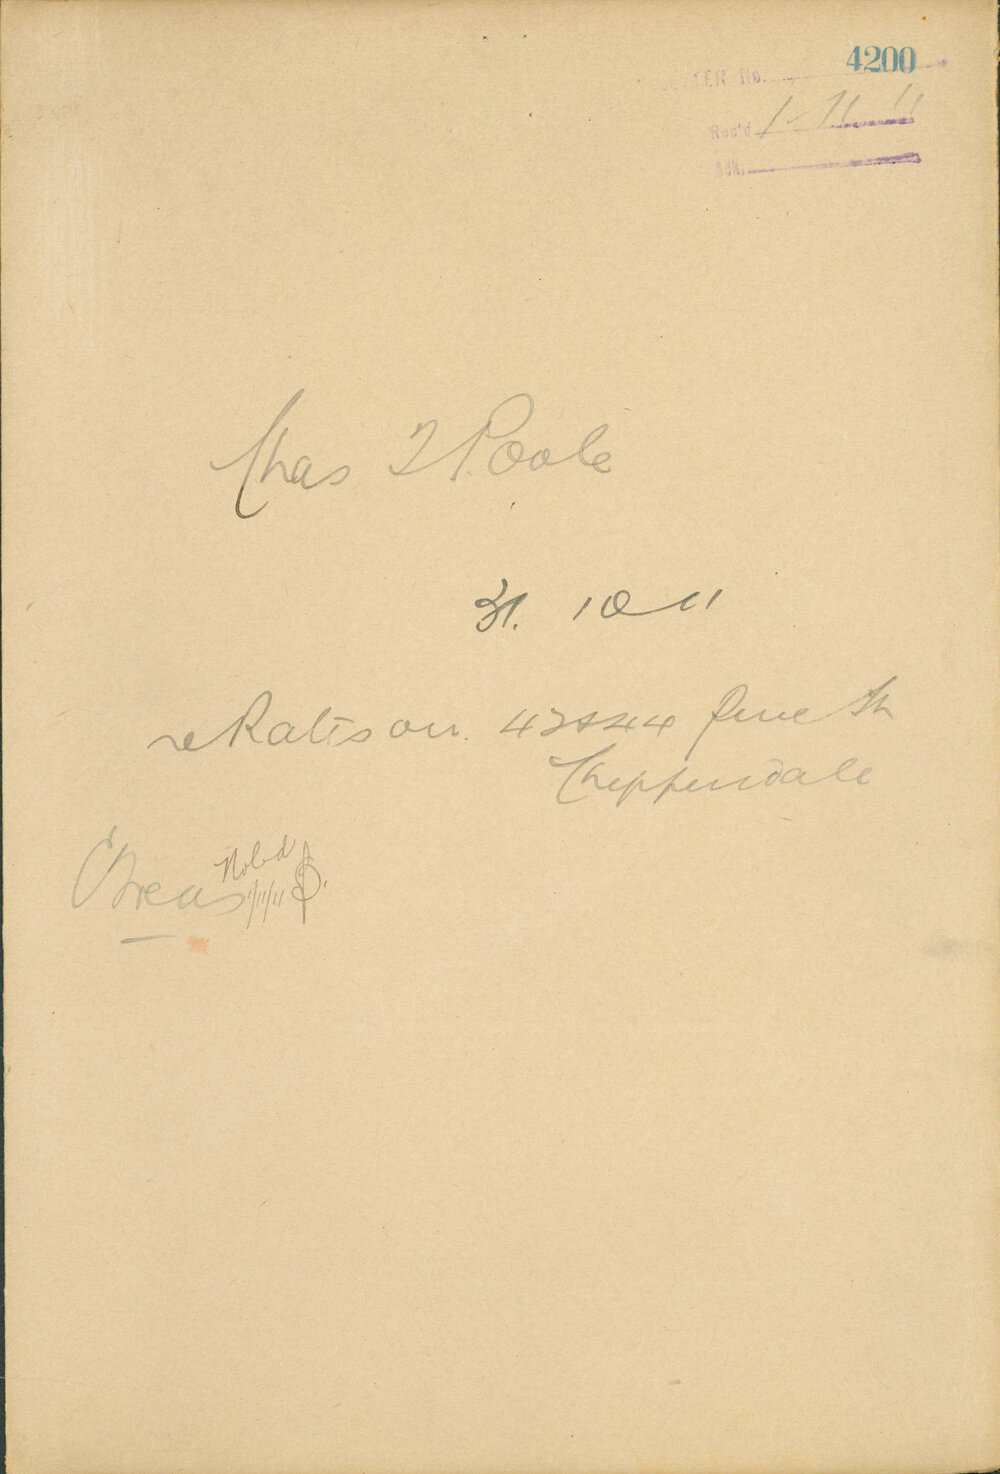 LETTER No. 4200
Rec'd 1-11 11
Ack.
Chas T Poole
31. 10 11
re Rates on. 42 & 44 Pine St
Chippendale
Treas
Noted
1/11/11